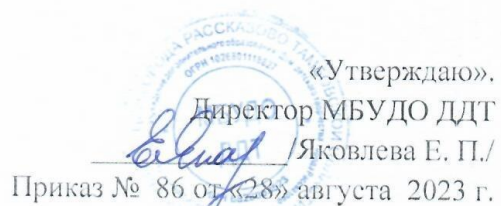 РАССКАЗОВО
«Утверждаю».
Директор МБУДО ДДТ
/Яковлева Е. П./
Приказ № 86 от «28» августа 2023 г.